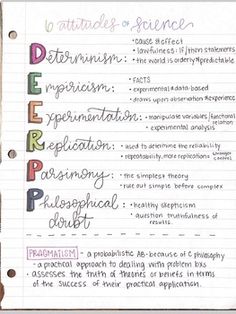 6 attitudes of science
• cause & effect
• lawfulness: if/then statements
Determinism: • the world is orderly & predictable
• FACTS
Empiricism: • experimental & data-based
• draws upon observation & experience
Experimentation: • manipulate variables / functional relation
• experimental analysis
Replication: • used to determine the reliability
• repeatability, more replications
Parsimony: • the simplest theory
• rule out simple before complex
Philosophical doubt
• healthy skepticism
• question truthfulness of results
PRAGMATISM - a probabilistic AB-because of C philosophy
- a practical approach to dealing with problem bxs
• assesses the truth of theories or beliefs in terms
of the success of their practical application.